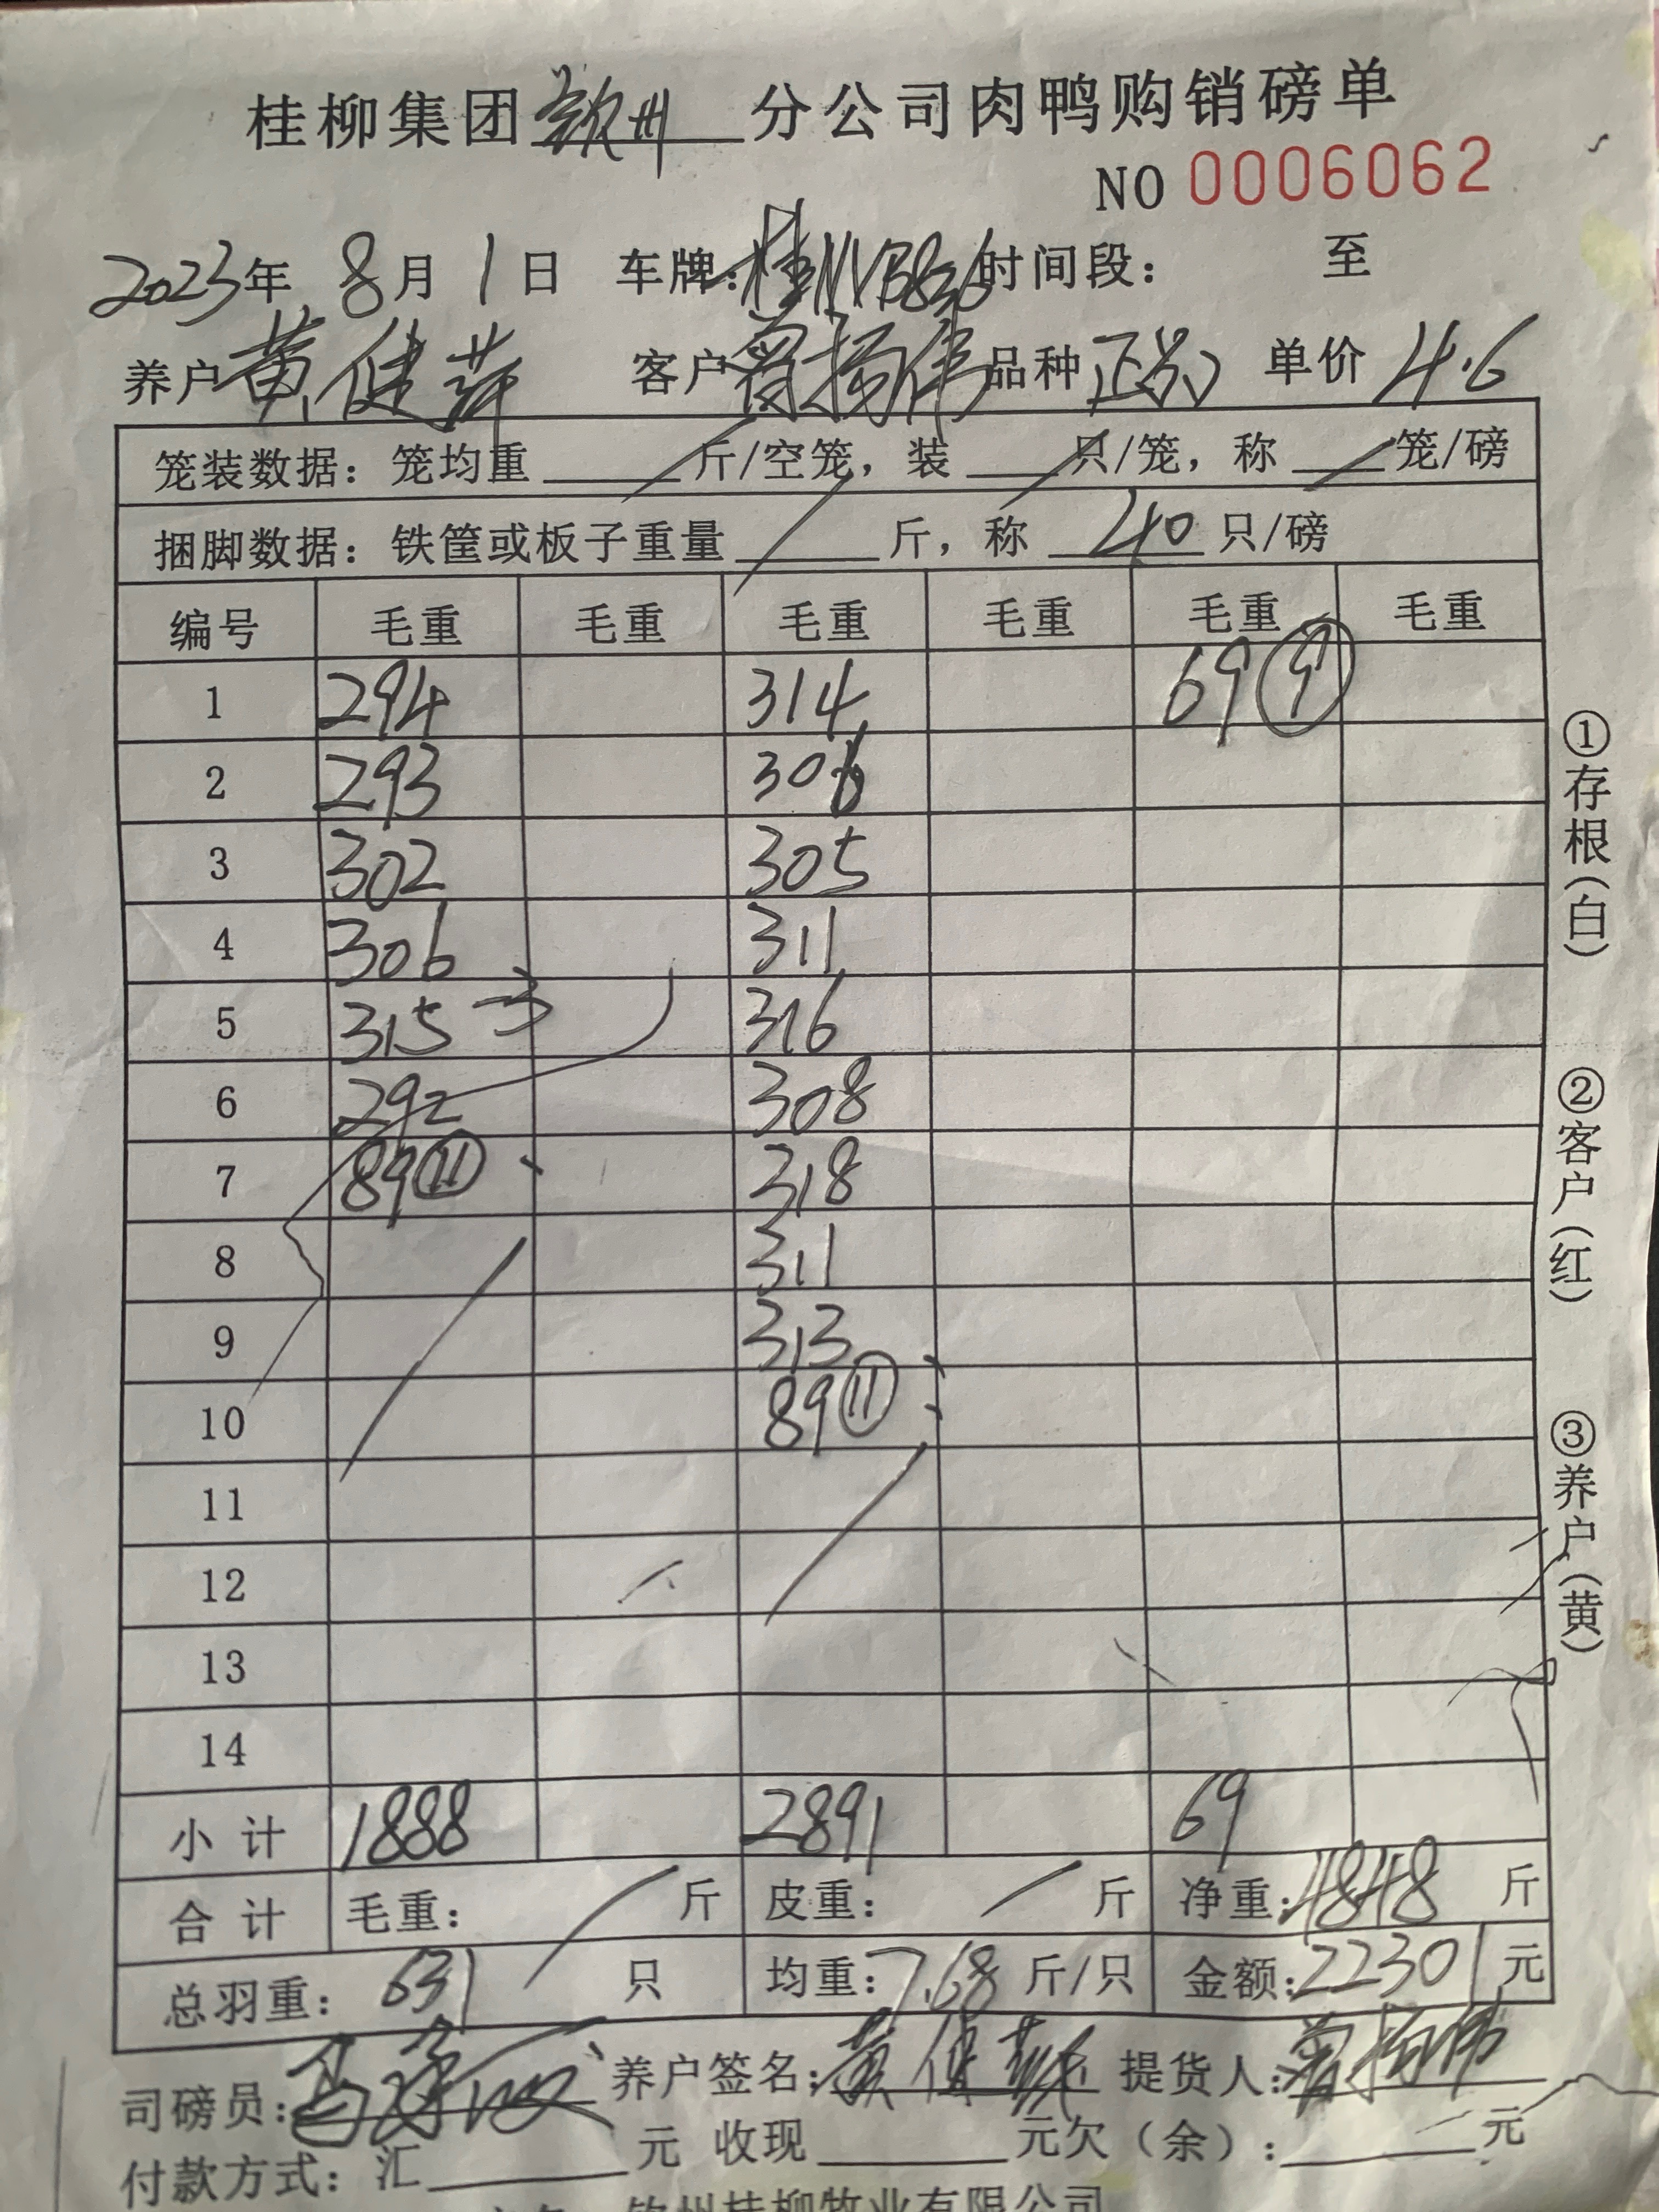 桂柳集团钦州分公司肉鸭购销磅单
NO 0006062
2023年 8月 1日 车牌: 时间段: 至
养户 黄健萍 客户 曾扬伟 品种 单价 4.6
笼装数据: 笼均重 斤/空笼, 装 只/笼, 称 笼/磅
捆脚数据: 铁筐或板子重量 斤, 称 40 只/磅
编号 毛重 毛重 毛重 毛重 毛重 毛重
1 294 314 69 ⑨
2 293 306
3 302 305
4 306 311
5 315 316
6 292 308
7 89 ⑪ 318
8 311
9 313
10 89 ⑪
11
12
13
14
小计 1888 2891 69
合计 毛重: 斤 皮重: 斤 净重: 4848 斤
总羽重: 631 只 均重: 7.68 斤/只 金额: 22301 元
司磅员: 养户签名: 黄健萍 提货人: 曾扬伟
付款方式: 汇 元 收现 元欠(余): 元
钦州桂柳牧业有限公司
①存根(白)
②客户(红)
③养户(黄)